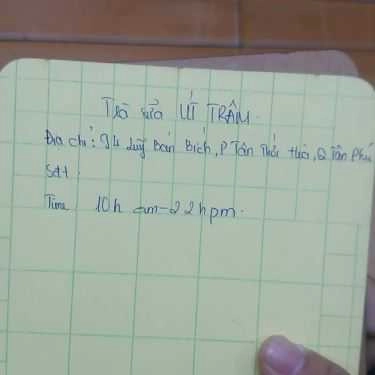 Trà sữa ÚT TRÂM.
Địa chỉ: 94 Luỹ Bán Bích, P Tân Thới Hoà, Q Tân Phú
Sđt:
Time 10h am-22h pm.